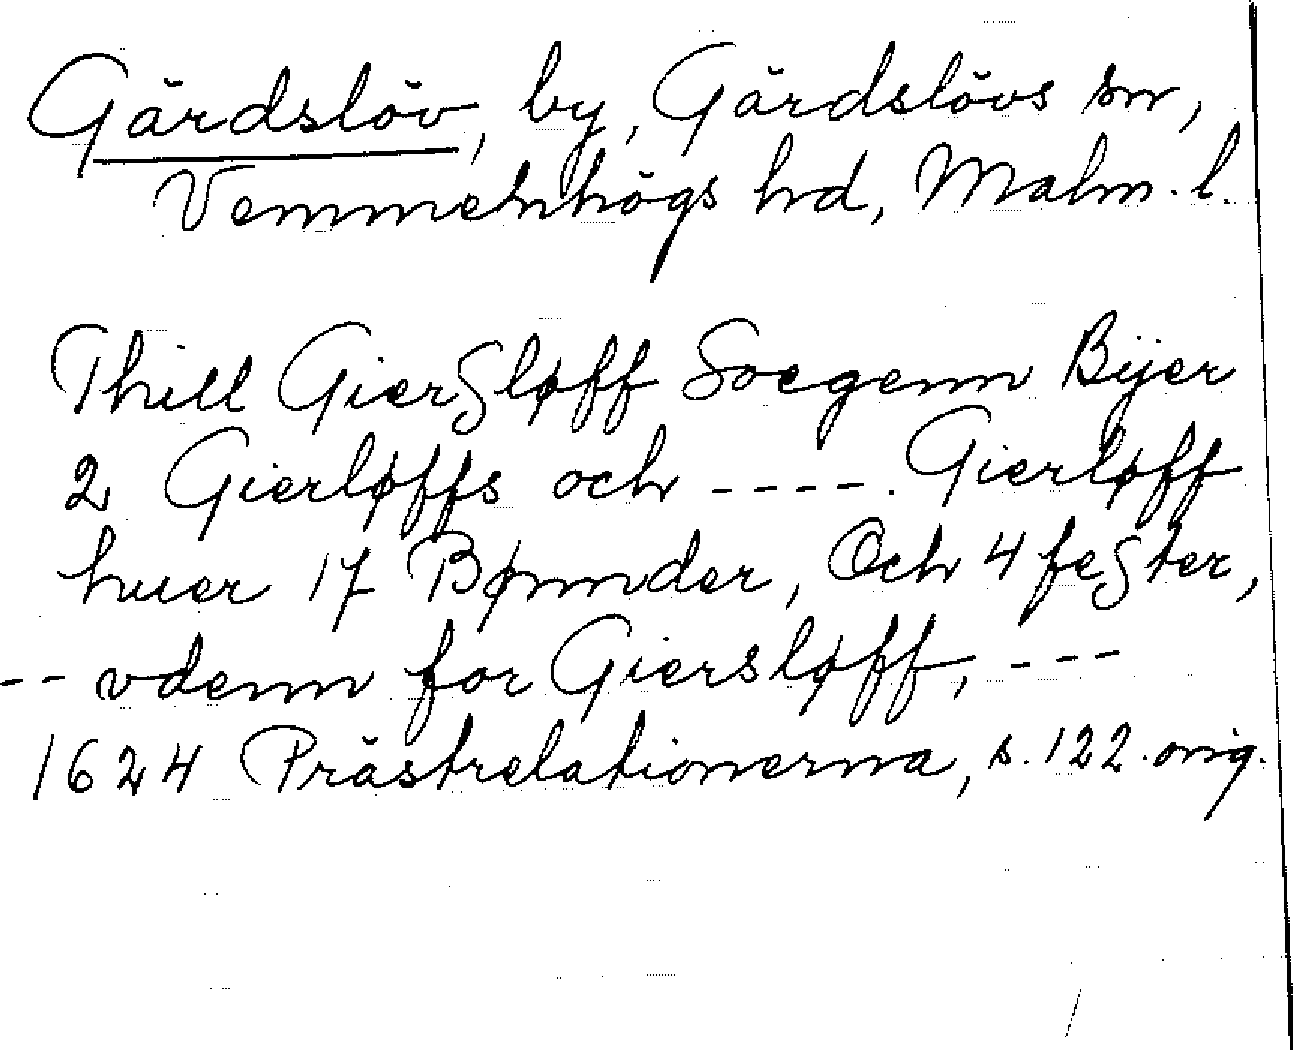 Gärdslöv, by, Gärdslövs sn,
Vemmenhögs hd, Malm. l.
Thill Gierßløff Soegenn Bÿer
2 Gierløffs och ----. Gierløff
huer 17 Bønnder, Och 4 feßter,
-- vdenn for Giersløff, ---
1624 Prästrelationerna, s. 122. orig.